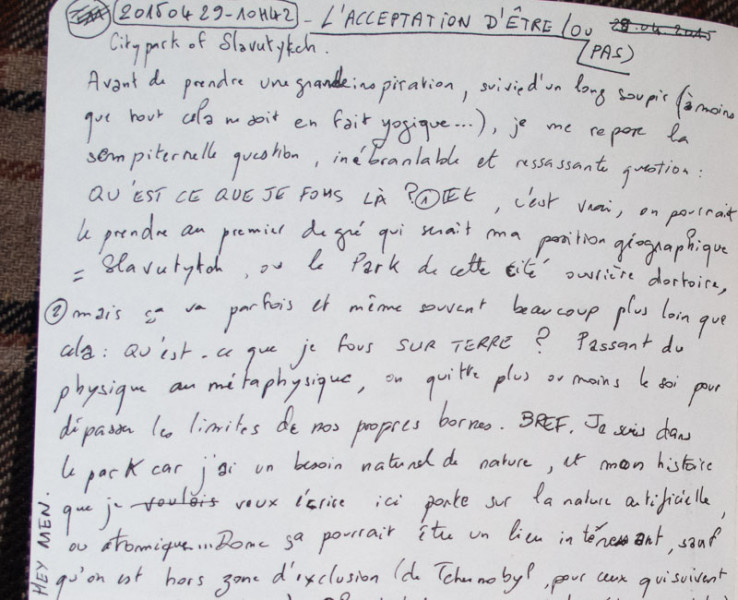 20150429-10H42 - L'ACCEPTATION D'ÊTRE (OU PAS) 28.04.2015
City park of Slavutytch.
Avant de prendre une grande inspiration, suivie d'un long soupir (à moins
que tout cela ne soit en fait yogique...), je me repose la
sempiternelle question, inébranlable et ressassante question :
QU'EST CE QUE JE FOUS LÀ ? ① ET, c'est vrai, on pourrait
le prendre au premier degré qui serait ma position géographique
= Slavutytch, ou le Park de cette cité ouvrière dortoire,
② mais ça va parfois et même souvent beaucoup plus loin que
cela : QU'EST-ce que je fous SUR TERRE ? Passant du
physique au métaphysique, on quitte plus ou moins le soi pour
dépasser les limites de nos propres bornes. BREF. Je suis dans
le park car j'ai un besoin naturel de nature, et mon histoire
que je voulais veux écrire ici porte sur la nature artificielle,
ou atomique... Donc ça pourrait être un lieu intéressant, sauf
qu'on est hors zone d'exclusion (de Tchernobyl, pour ceux qui suivent
HEY MEN.